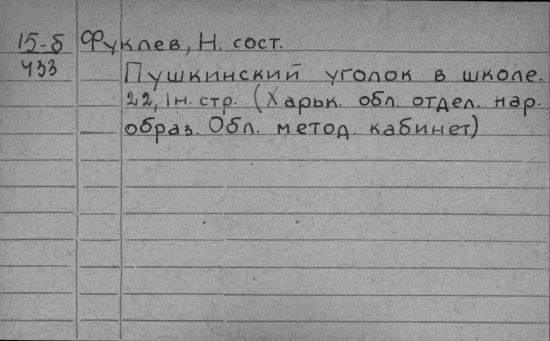 15-б Фуклев, Н. сост.
433 Пушкинский уголок в школе.
22, 1н. стр. (Харьк. обл. отдел. нар.
образ. Обл. метод. кабинет)